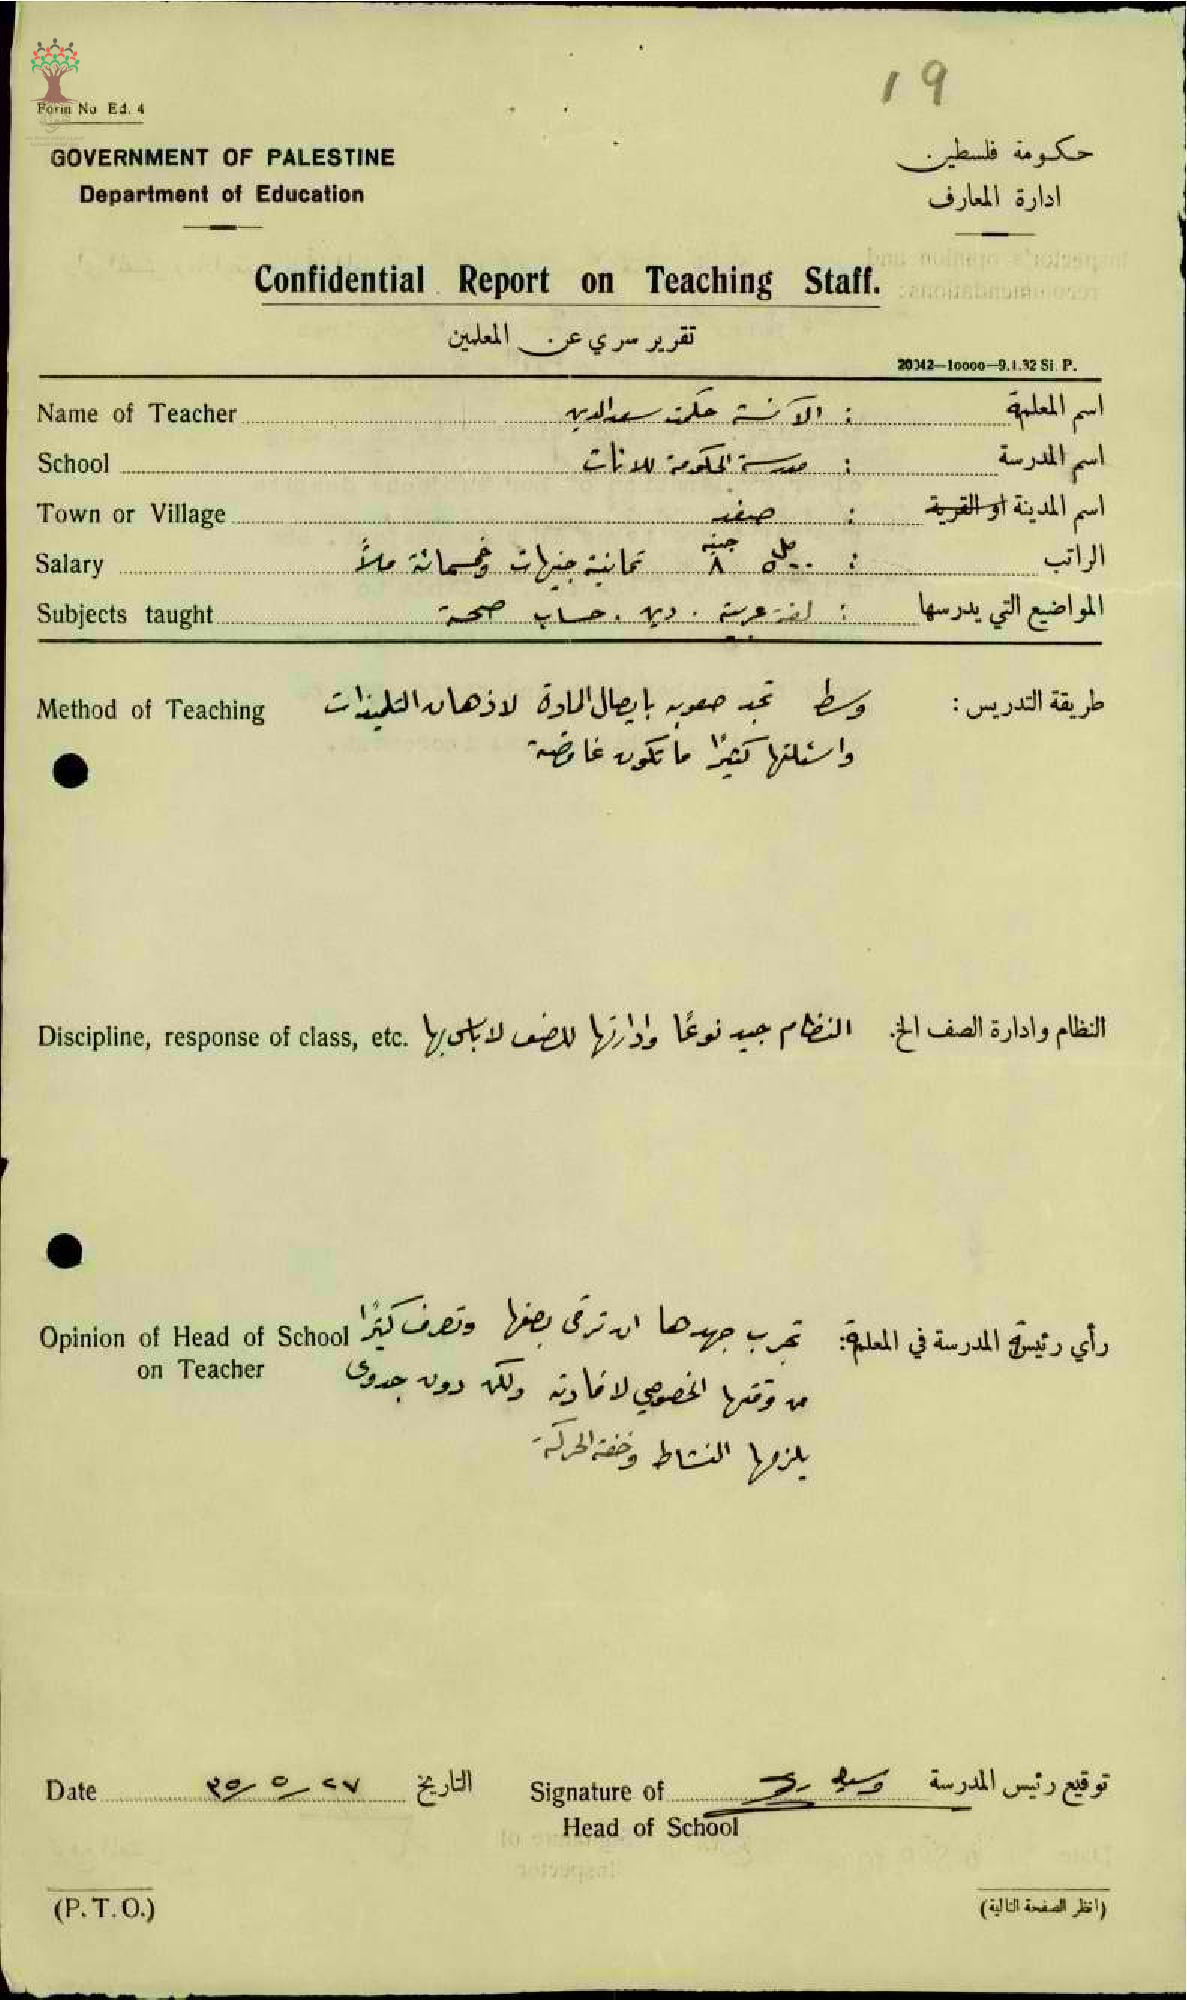 19
Form No Ed. 4
GOVERNMENT OF PALESTINE
Department of Education
حكومة فلسطين
ادارة المعارف
Confidential Report on Teaching Staff.
تقرير سري عن المعلمين
20342—10000—9.1.32 Si. P.
Name of Teacher الآنسة حكمت سعد الدين : اسم المعلمة
School مدرسة الحكومة للاناث : اسم المدرسة
Town or Village صفد : اسم المدينة او القرية
Salary ثمانية جنيهات وخمسمائة ملاً ٨ جنيه ٥٠٠ مل : الراتب
Subjects taught لغة عربية . دين . حساب صحة : المواضيع التي يدرسها
Method of Teaching وسط تجد صعوبه بايصال المادة لاذهان التلميذات طريقة التدريس :
واسئلتها كثيرًا ما تكون غامضة
Discipline, response of class, etc. النظام جيد نوعًا وادارتها للصف لا بأس بها النظام وادارة الصف الخ.
Opinion of Head of School on Teacher تجرب جهدها ان ترقى بصفها وتصرف كثيرًا رأي رئيسة المدرسة في المعلمة:
من وقتها الخصوصي لافادته ولكن دون جدوى
يلزمها النشاط وخفة الحركة
Date ٢٧/٥/٣٥ التاريخ
Signature of Head of School توقيع رئيس المدرسة
(P. T. O.)
(انظر الصفحة التالية)